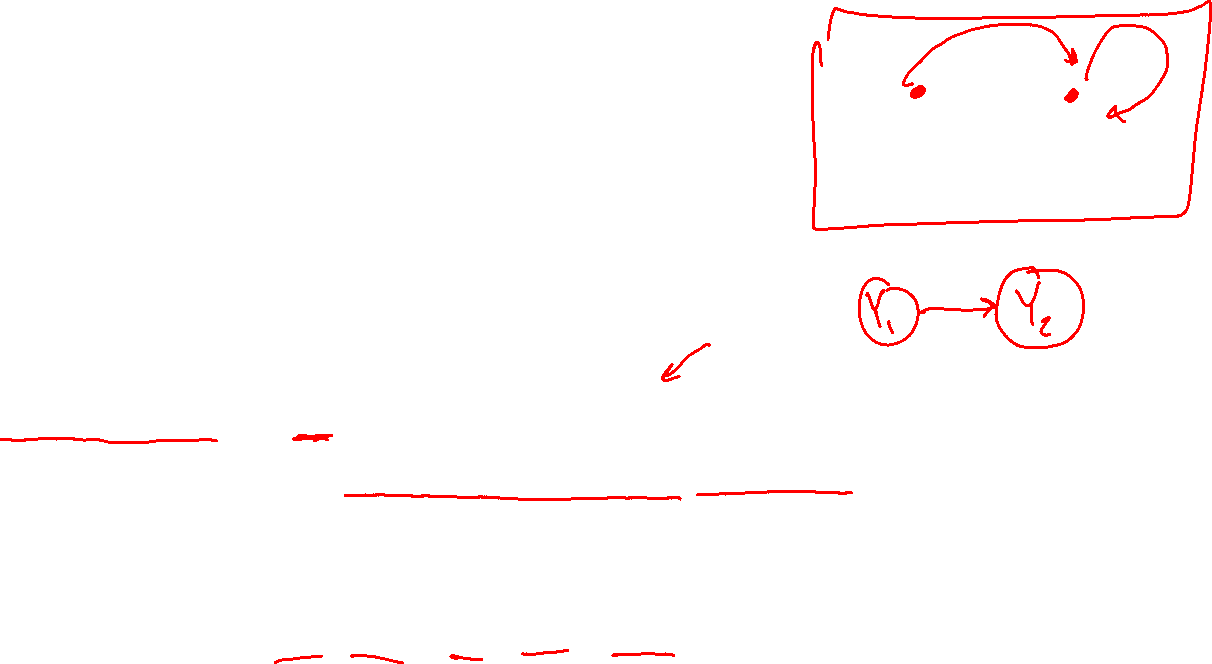 Y₁ Y₂